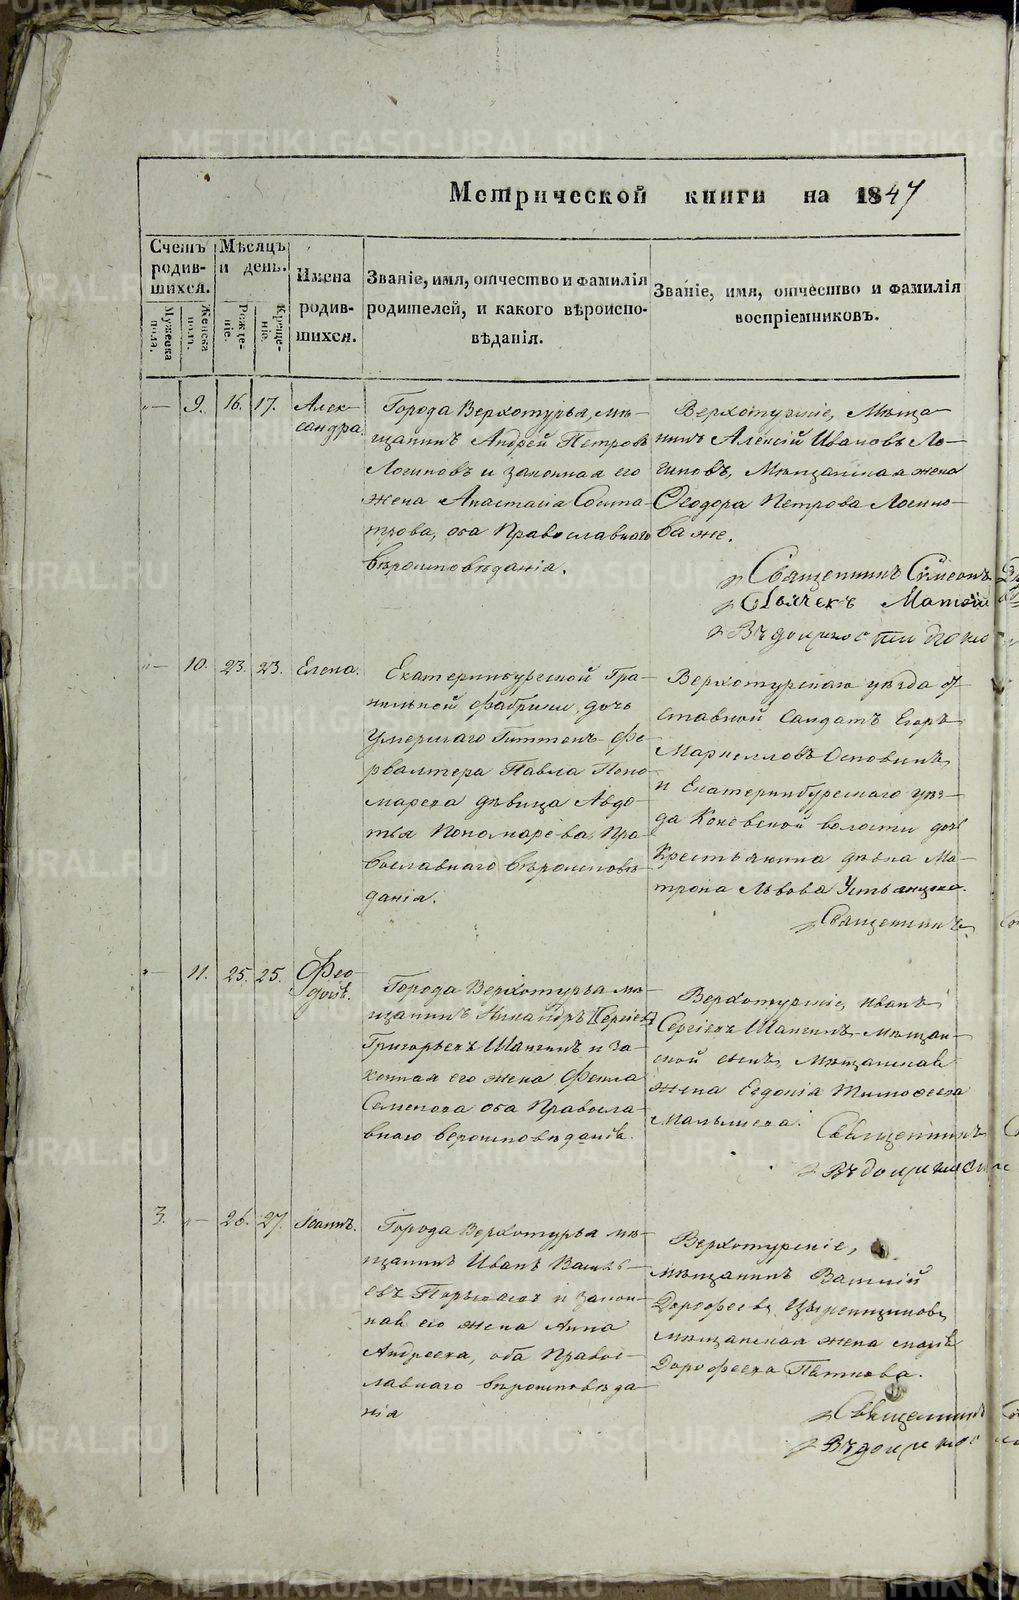 METRIKI.GASO-URAL.RU
Метрической книги на 1847
Счетъ родив-шихся.
Мужеска пола.
Женска пол.
Мѣсяцъ и день.
Рожде-ніе.
Креще-ніе.
Имена родив-шихся.
Званіе, имя, отчество и фамилія
родителей, и какого вѣроиспо-
вѣданія.
Званіе, имя, отчество и фамилія
воспріемниковъ.
"— 9. 16. 17. Алек-
сандра
Города Верхотурья, мѣ-
щанинъ Андрей Петровъ
Логиновъ и законная его
жена Анастасія Сосипа-
трова, оба Православнаго
вѣроисповѣданія.
Верхотурскіе, Мѣща-
нинъ Алексій Ивановъ Ло-
гиновъ, Мѣщанская жена
Ѳеодора Петрова Логино-
ва же.
Священникъ Симеонъ
Дьячекъ
"— 10. 23. 23. Елена.
Екатеринбургской Гра-
нильной фабрики, дочь
умершаго Гиттенъ-фе-
рвалтера Павла Поно-
марева дѣвица Авдо-
тья Пономарева, Пра-
вославнаго вѣроисповѣ-
данія.
Верхотурскаго уѣзда от-
ставной Солдатъ Егоръ
Маркелловъ
и Екатеринбургскаго уѣз-
да Коневской волости дочь
Крестьянина дѣвка Ма-
трона Львова
Священникъ
"— 11. 25. 25. Ѳео-
досія.
Города Верхотурья мѣ-
щанинъ Никандръ [Сергіевъ]
Григорьевъ Шангинъ и за-
конная его жена Фекла
Семенова оба Правосла-
внаго вѣроисповѣданія.
Верхотурскіе, Иванъ
Сергіевъ Шангинъ мѣщан-
ской сынъ, Мѣщанская
жена Евдокія Тимофеева
Малышева.
Священникъ
3. "— 26. 27. Іоаннъ.
Города Верхотурья мѣ-
щанинъ Иванъ Василь-
евъ и закон-
ная его жена Анна
Андреева, оба Правос-
лавнаго вѣроисповѣда-
нія
Верхотурскіе,
мѣщанинъ Василій
Дорофеевъ
мѣщанская жена
Дорофеева
Священникъ